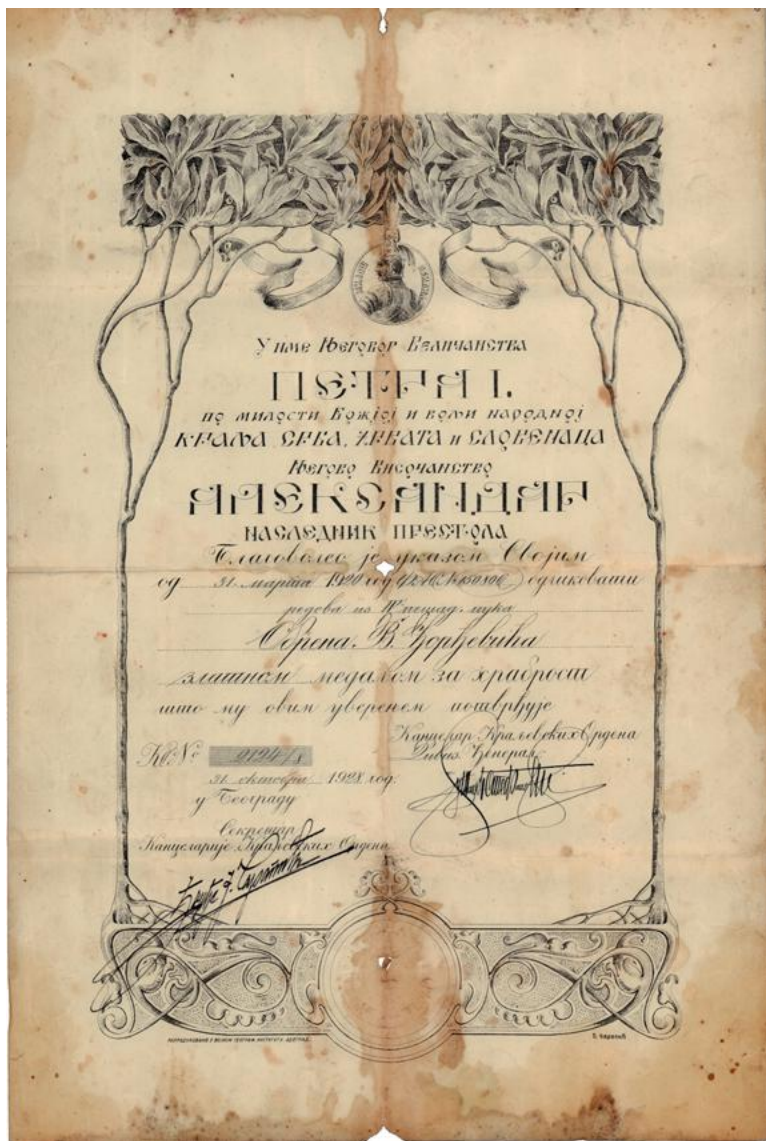 У име Његовог Величанства
ПЕТРА I.
по милости Божјој и вољи народној
КРАЉА СРБА, ХРВАТА и СЛОВЕНАЦА
Његово Височанство
АЛЕКСАНДАР
НАСЛЕДНИК ПРЕСТОЛА
Благоволео је указом Својим
од 31. марта 1920 год. одликовати
редова из пешад. пука
Обрена В. Ђорђевића
златном медаљом за храброст
што му овим уверењем потврђује
Канцелар Краљевских Ордена
Дивиз. Ђенерал,
Кв. №
31. октобра 1928 год.
у Београду
Секретар
Канцеларије Краљевских Ордена